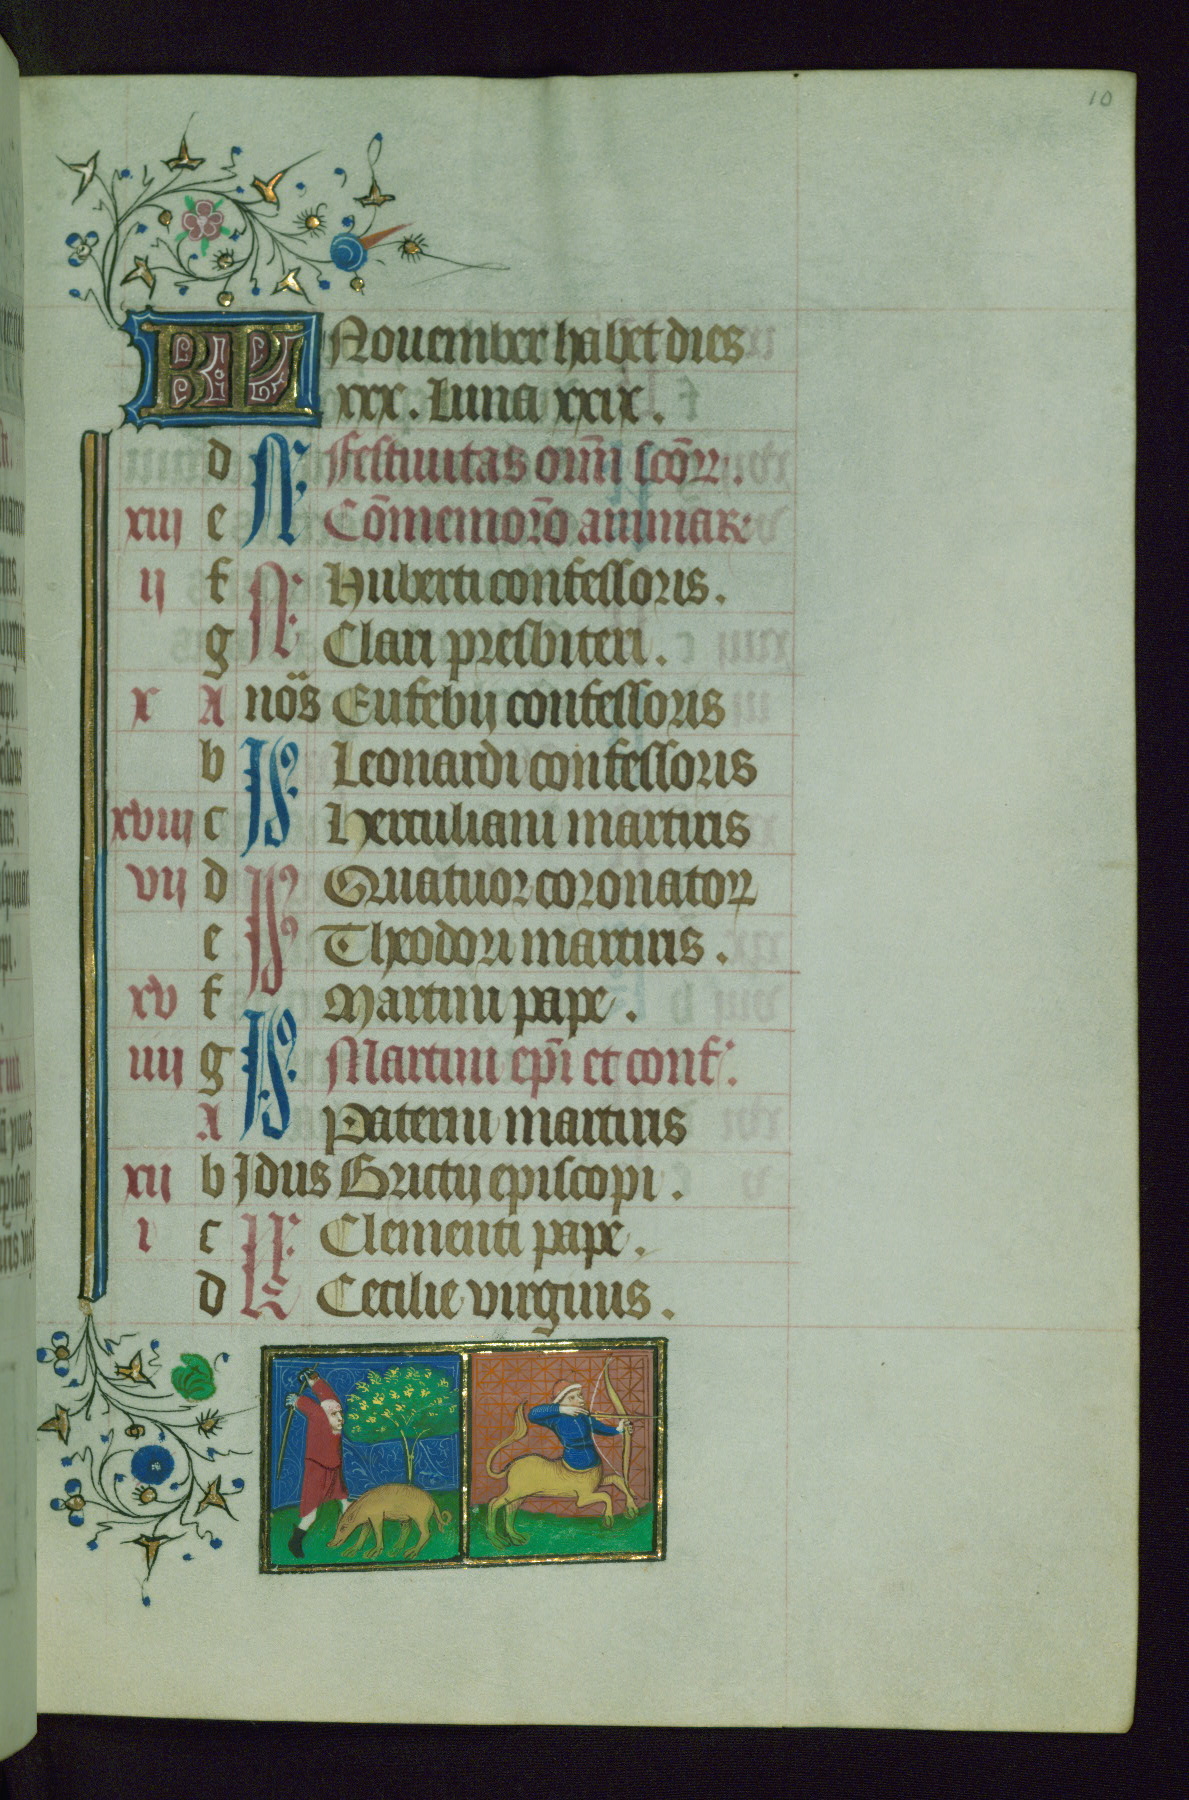 10
KL Nouember habet dies
xxx. Luna xxix.
d N: Festiuitas om̄i sc̄oꝝ.
xiii e N: Cōmemorō animar:
ii f N: Huberti confessoris.
g N: Clari presbiteri.
x A noïs Eusebij confessoris
b Id: Leonardi confessoris
xviii c Id: Herculiani martiris
vii d Id: Quatuor coronatoꝝ
e Id: Theodori martiris.
xv f Id: Martini pape.
iiii g Id: Martini ep̄i et conf:.
A Id: Paterni martiris
xii b Idus Brictij episcopi.
i c Clementi pape.
d kl Cecilie virginis.